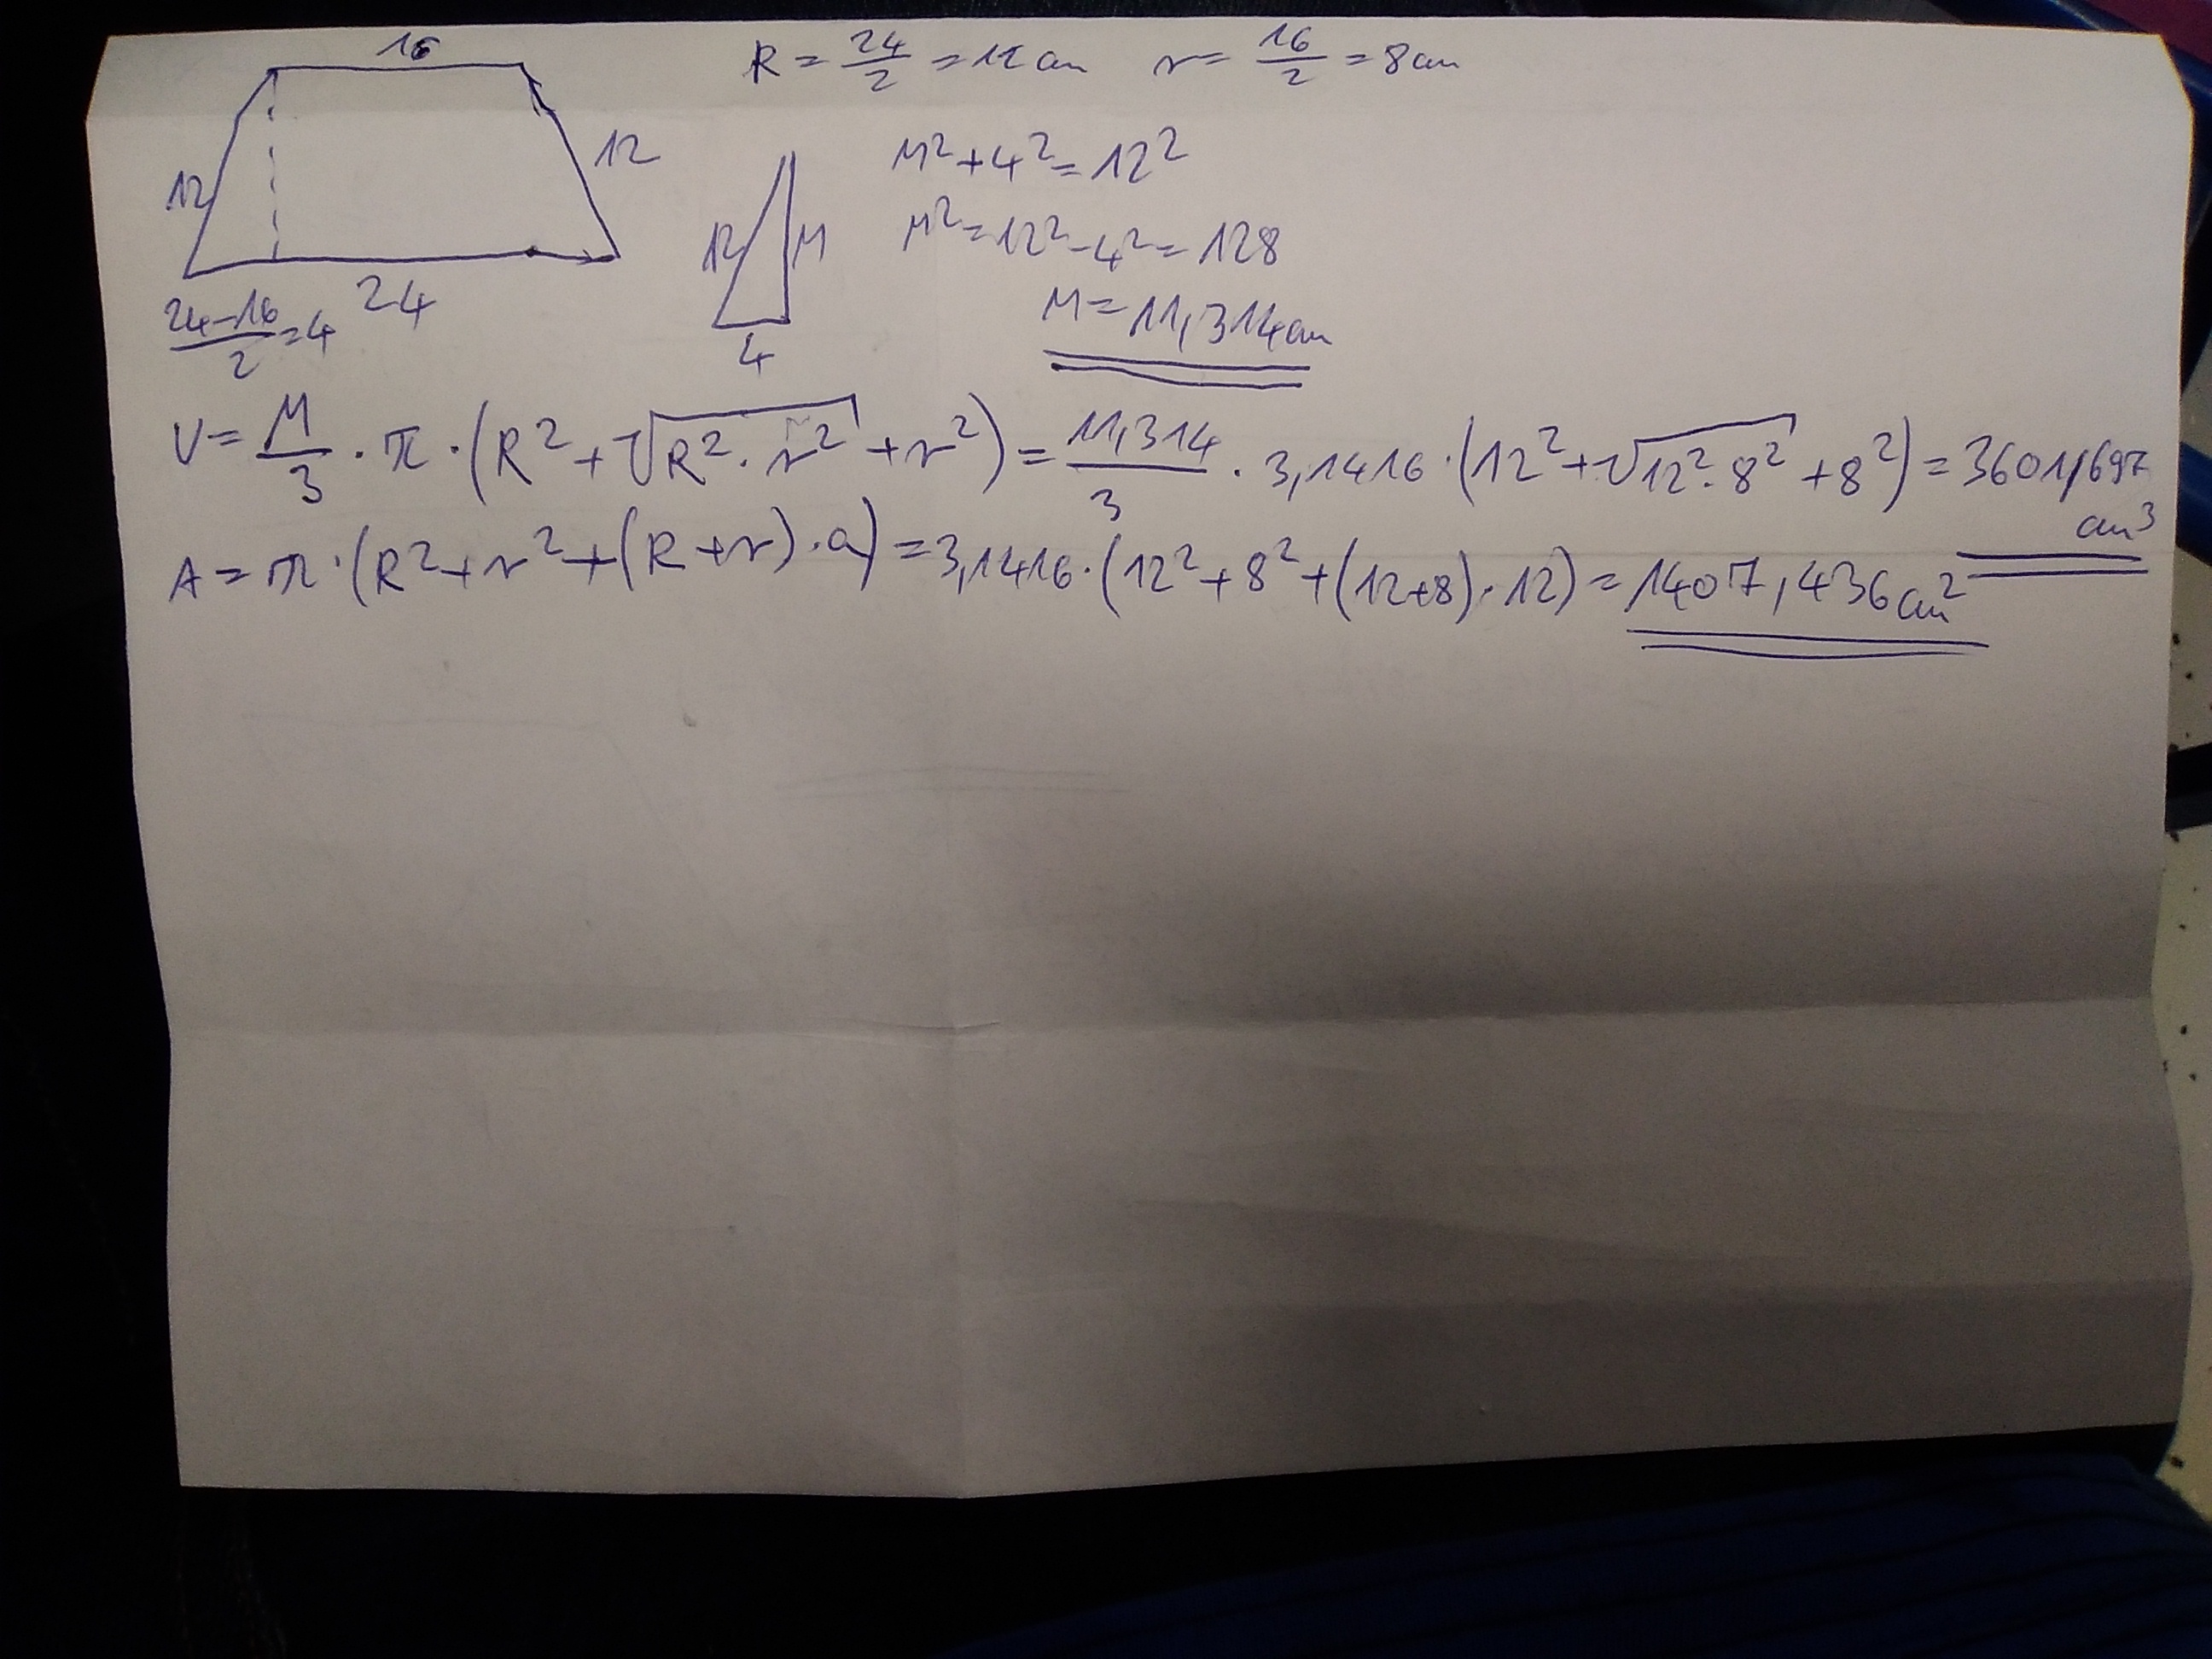 16
R = 24/2 = 12 cm   r = 16/2 = 8 cm
12
12
24-16/2 = 4
24
12
M
4
M² + 4² = 12²
M² = 12² - 4² = 128
M = 11,314 cm
V = M/3 · π · (R² + √R² · r² + r²) = 11,314/3 · 3,1416 · (12² + √12² · 8² + 8²) = 3601,697 cm³
A = π · (R² + r² + (R + r) · a) = 3,1416 · (12² + 8² + (12+8) · 12) = 1407,436 cm²